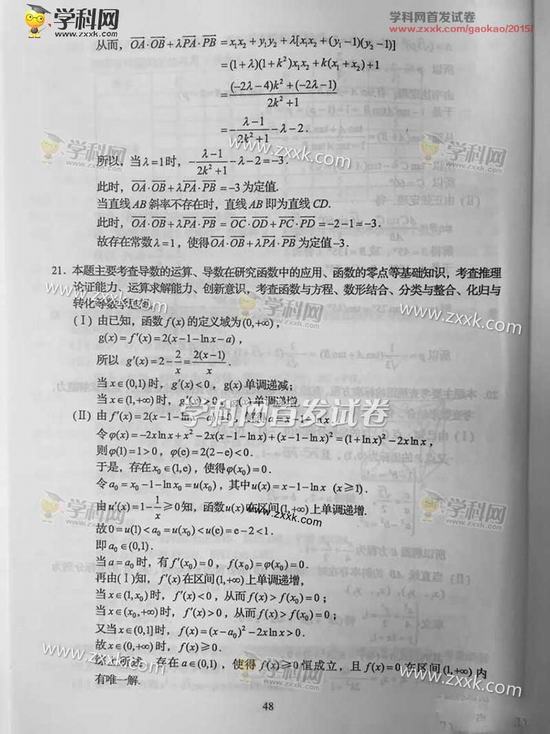 学科网
www.zxxk.com
学科网首发试卷
www.zxxk.com/gaokao/2015/
从而，OA·OB+λPA·PB=x₁x₂+y₁y₂+λ[x₁x₂+(y₁-1)(y₂-1)]
=(1+λ)(1+k²)x₁x₂+k(x₁+x₂)+1
=((-2λ-4)k²+(-2λ-1))/(2k²+1)
=-(λ-1)/(2k²+1)-λ-2.
所以，当λ=1时，-(λ-1)/(2k²+1)-λ-2=-3.
此时，OA·OB+λPA·PB=-3为定值.
当直线AB斜率不存在时，直线AB即为直线CD.
此时，OA·OB+λPA·PB=OC·OD+PC·PD=-2-1=-3.
故存在常数λ=1，使得OA·OB+λPA·PB为定值-3.
21. 本题主要考查导数的运算、导数在研究函数中的应用、函数的零点等基础知识，考查推理
论证能力、运算求解能力、创新意识，考查函数与方程、数形结合、分类与整合、化归与
转化等数学思想.
(Ⅰ) 由已知，函数f(x)的定义域为(0,+∞)，
g(x)=f′(x)=2(x-1-lnx-a)，
所以 g′(x)=2-2/x=2(x-1)/x.
当x∈(0,1)时，g′(x)<0，g(x)单调递减；
当x∈(1,+∞)时，g′(x)>0，g(x)单调递增.
(Ⅱ) 由f′(x)=2(x-1-lnx-a)=0，解得a=x-1-lnx.
令φ(x)=-2xlnx+x²-2x(x-1-lnx)+(x-1-lnx)²=(1+lnx)²-2xlnx，
则φ(1)=1>0，φ(e)=2(2-e)<0.
于是，存在x₀∈(1,e)，使得φ(x₀)=0.
令a₀=x₀-1-lnx₀=u(x₀)，其中u(x)=x-1-lnx (x≥1).
由u′(x)=1-1/x≥0知，函数u(x)在区间(1,+∞)上单调递增.
故0=u(1)<a₀=u(x₀)<u(e)=e-2<1.
即a₀∈(0,1).
当a=a₀时，有f′(x₀)=0，f(x₀)=φ(x₀)=0.
再由(Ⅰ)知，f′(x)在区间(1,+∞)上单调递增，
当x∈(1,x₀)时，f′(x)<0，从而f(x)>f(x₀)=0；
当x∈(x₀,+∞)时，f′(x)>0，从而f(x)>f(x₀)=0；
又当x∈(0,1]时，f(x)=(x-a₀)²-2xlnx>0.
故x∈(0,+∞)时，f(x)≥0.
综上所述，存在a∈(0,1)，使得f(x)≥0恒成立，且f(x)=0在区间(1,+∞)内
有唯一解.
48